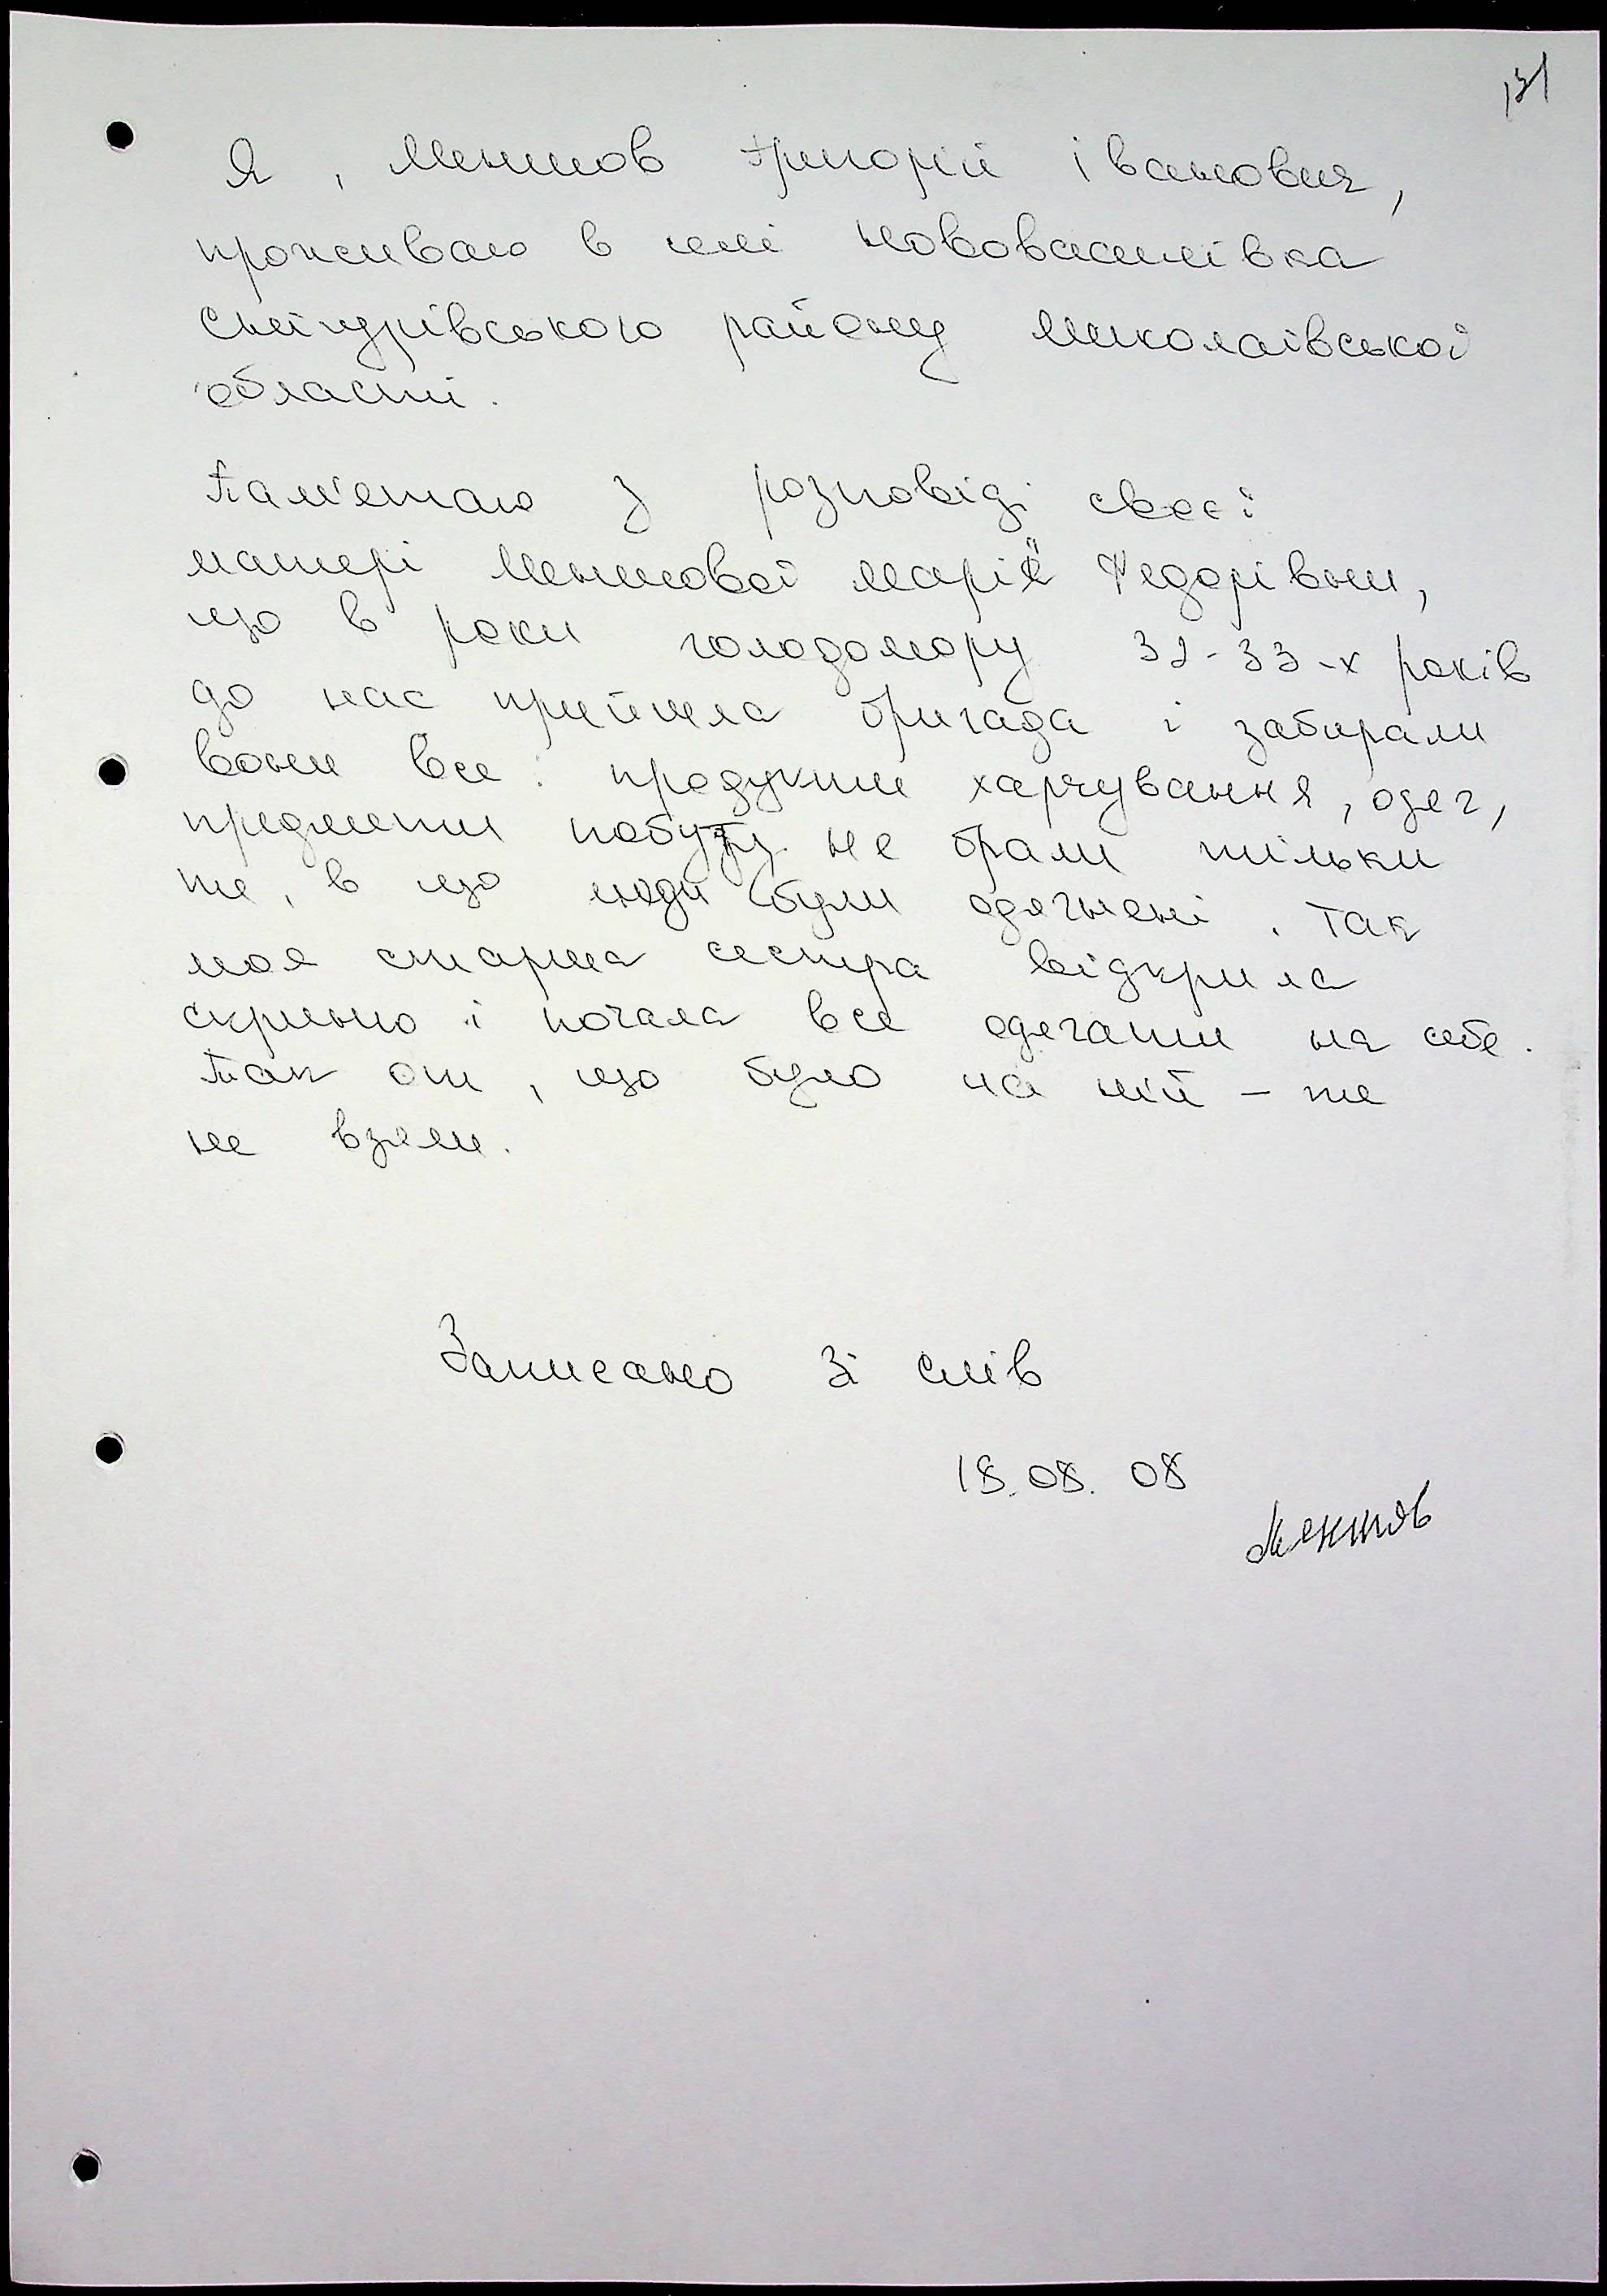 131
Я, Меншов Григорій Іванович,
проживаю в селі Нововасилівка
Снігурівського району Миколаївської
області.
Пам'ятаю з розповіді своєї
матері Меншової Марії Федорівни,
що в роки голодомору 32-33-х років
до нас прийшла бригада і забирали
вони все: продукти харчування, одяг,
предмети побуту. не брали тільки
те, в що люди були одягнені. Так
моя старша сестра відкрила
скриню і почала все одягати на себе.
Так от, що було на ній - те
не взяли.
Записано зі слів
18.08.08
Меншов